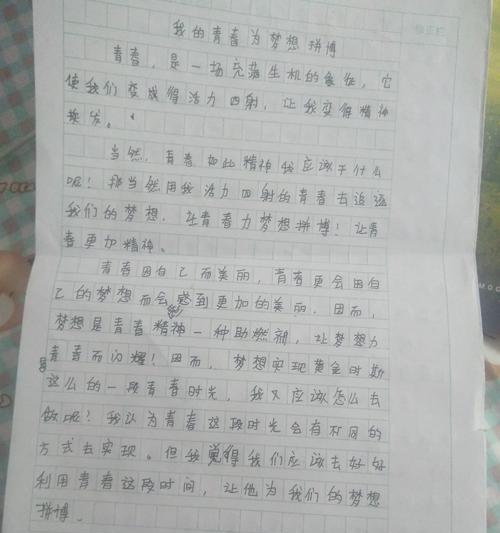 我的青春为梦想拼搏
青春,是一场充满生机的象征,它
使我们变成得活力四射,让我变得精神
焕发。
当然,青春如此精神我应该干什么
呢!那当然用我活力四射的青春去追逐
我们的梦想,让青春为梦想拼搏!让青
春更加精神。
青春因自己而美丽,青春更会因自
己的梦想而会感到更加的美丽。因而,
梦想是青春精神一种助燃剂,让梦想为
青春而闪耀!因而,梦想实现黄金时期
这么的一段青春时光,我又应该怎么去
做呢?我认为青春这段时光会有不同的
方式去实现。但我觉得我们应该去好好
利用青春这段时间,让他为我们的梦想
拼搏。